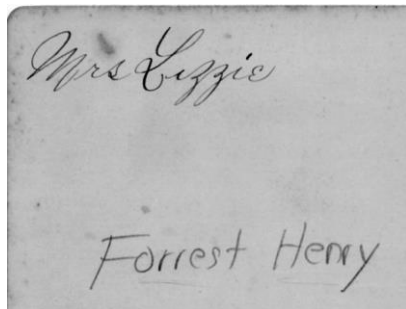 Mrs Lizzie
Forrest Henry